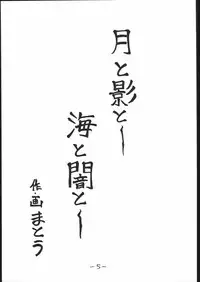 月と影と〜
海と闇と〜
作・画 まとう
－5－